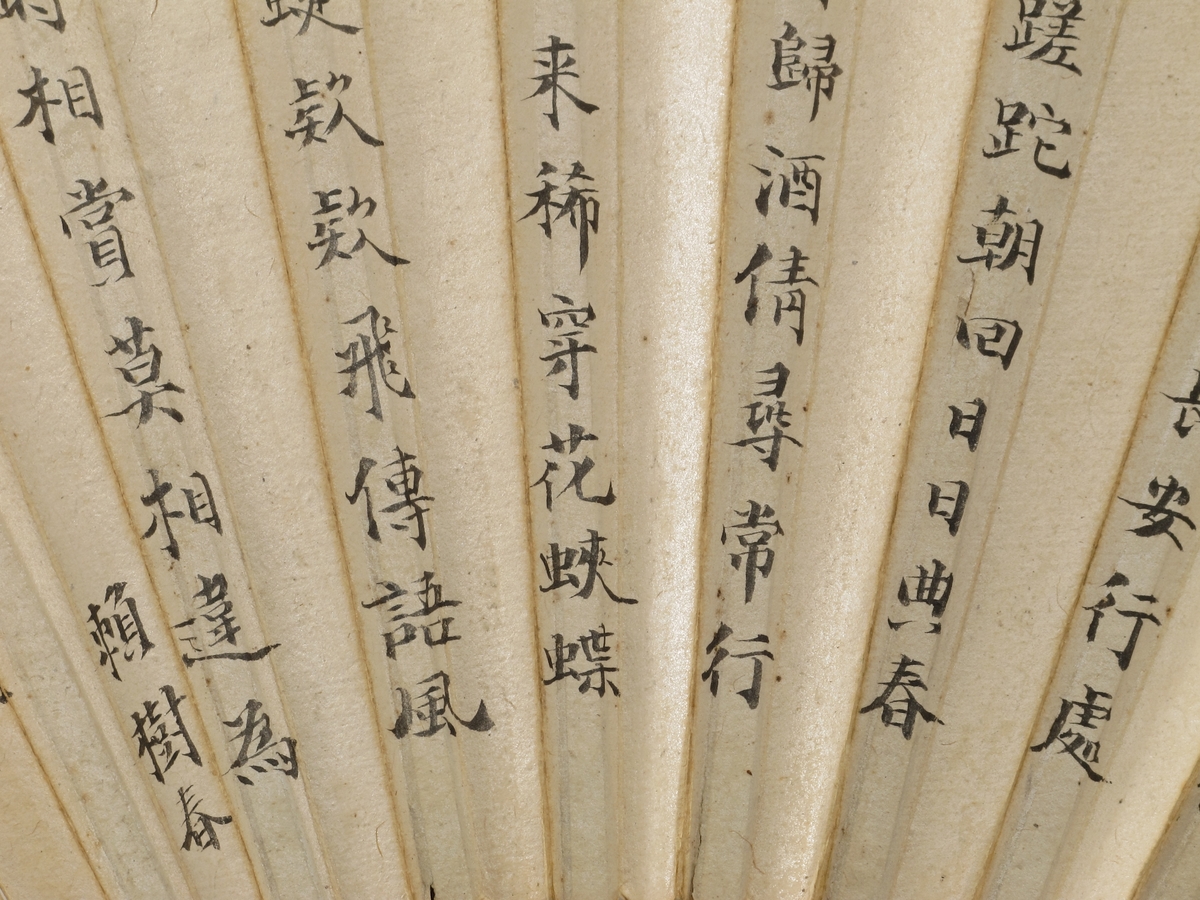 長安行處
蹉跎朝回日日典春
歸酒倩尋常行
来稀穿花蛺蝶
蜓欵欵飛傳語風
相賞莫相違為
賴樹春